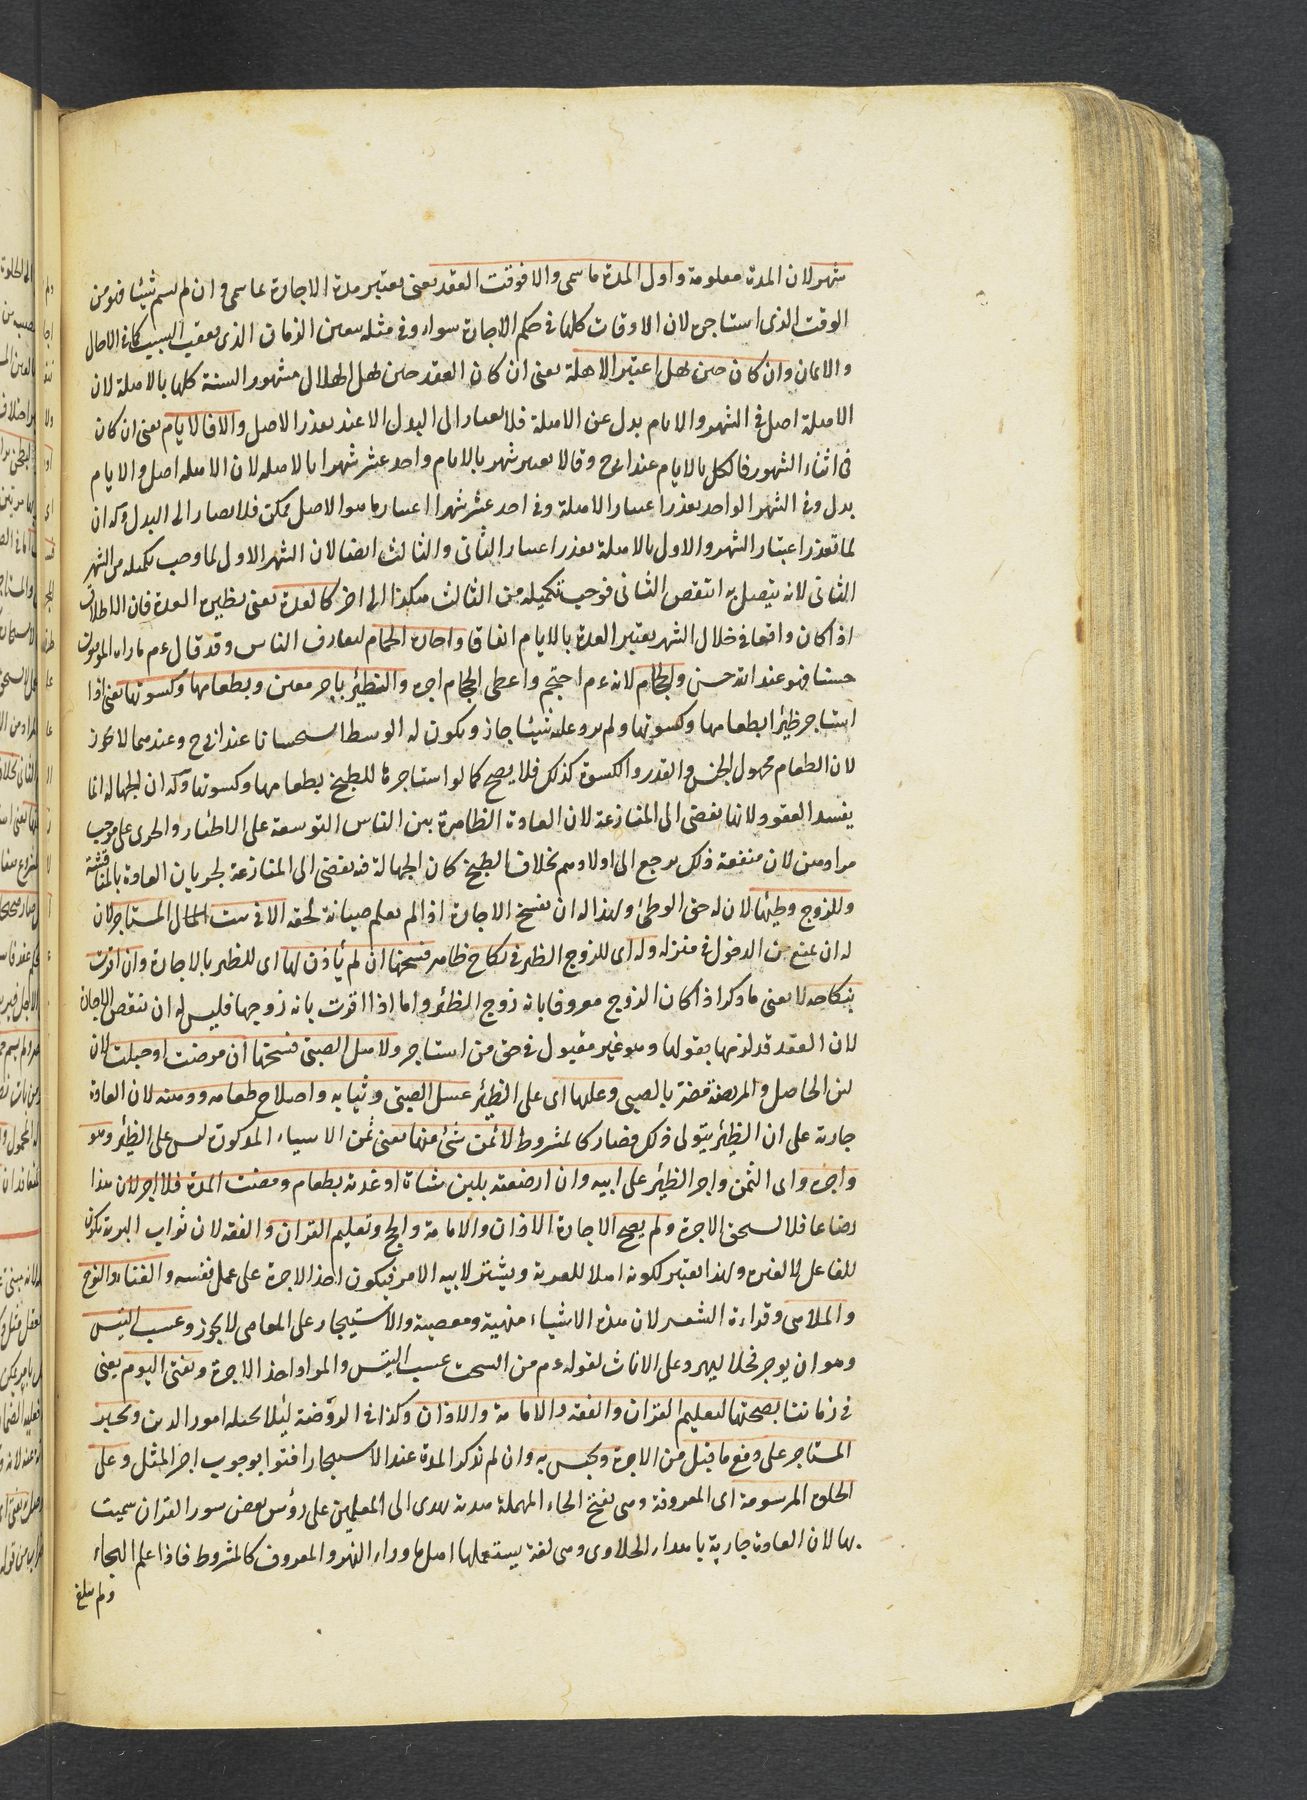 شهر لان المدة معلومة واول المدة ما سمى والا فوقت العقد يعنى يعتبر مدة الاجارة بما سمى وان لم يسم شيئا فهو من
الوقت الذى استاجره لان الاوقات كلها فى حكم الاجارة سواء وفى مثله يتعين الزمان الذى يعقب السبب كما فى الاجال
والايمان وان كان حين يهل اعتبر الاهلة يعنى ان كان العقد حين يهل الهلال فشهور السنة كلها بالاهلة لان
الاهلة اصل فى الشهور والايام بدل عن الاهلة فلا يصار الى البدل الا عند تعذر الاصل والا فالايام يعنى ان كان
فى اثناء الشهور فالكل بالايام عند ابى ح وقالا يعتبر شهر بالايام واحد عشر شهرا بالاهله لان الاهله اصل والايام
بدل وفى الشهر الواحد تعذر اعتبار الاهلة وفى احد عشر شهرا اعتبار ما هو الاصل ممكن فلا يصار الى البدل وله ان
لما تعذر اعتبار الشهر الاول بالاهلة تعذر اعتبار الثانى والثالث ايضا لان الشهر الاول لما وجب تكميله من الشهر
الثانى لانه يتصل به انتقص الثانى فوجب تكميله من الثالث هكذا الى اخره كالعدة يعنى نظيره العدة فان الطلاق
اذا كان واقعا فى خلال الشهر يعتبر العدة بالايام اتفاقا واجارة الحمام لتعارف الناس وقد قال ءم ما راه المؤمنون
حسنا فهو عند الله حسن والحجام لانه ءم احتجم واعطى الحجام اجره والظئر باجر معين وبطعامها وكسوتها يعنى اذا
استاجر ظئرا بطعامها وكسوتها ولم يزد عليه شيئا جاز ويكون له الوسط استحسانا عند ابى ح وعندهما لا يجوز
لان الطعام مجهول الجنس والقدر والكسوة كذلك فلا يصح كما لو استاجرها للطبخ بطعامها وكسوتها وله ان الجهالة انما
يفسد العقود لانها تفضى الى المنازعة لان العادة الظاهرة بين الناس التوسعة على الاظئار والجرى على موجب
مرادهن لان منفعة ذلك يرجع الى اولادهم بخلاف الطبخ كان الجهالة فيه تفضى الى المنازعة لجريان العادة بالمناقشة
وللزوج وطيها لان له حق الوطئ ولهذا له ان يفسخ الاجارة اذا لم يعلم صيانة لحقه الا فى بيت المستاجر لان
له ان يمنع من الدخول فى منزله وله اى للزوج الظئر فى نكاح ظاهر فسخها ان لم يأذن لها اى للظئر بالاجارة وان اقرت
بنكاحه لا يعنى ما ذكر اذا كان الزوج معروفا بانه زوج الظئر واما اذا اقرت بانه زوجها فليس له ان ينقض الاجارة
لان العقد قد لزمها بقولها وهو غير مقبول فى حق من استاجر ولاهل الصبى فسخها ان مرضت او حبلت لان
لبن الحامل والمريضة مضر بالصبى وعليها اى على الظئر غسل الصبى وثيابه واصلاح طعامه ودهنه لان العادة
جارية على ان الظئر يتولى ذلك فصار كالمشروط لا ثمن شئ منها يعنى ثمن الاشياء المذكورة ليس على الظئر وهو
واجره اى الثمن واجر الظئر على ابيه وان ارضعته بلبن شاة او غدته بطعام ومضت المدة فلا اجر لان هذا
رضاعا فلا تستحق الاجرة ولم يصح الاجارة الاذان والامامة والحج وتعليم القران والفقه لان ثواب القربة يكون
للفاعل لا لغيره ولهذا يعتبر لكونه اهلا للقربة ونيته لا نية الامر فيكون اخذ الاجرة على عمل نفسه والغناء والنوح
والملاهى وقراءة الشعر لان هذه الاشياء منهية ومعصية والاستيجار على المعاصى لا يجوز وعسب التيس
وهو ان يوجر فحلا لينزو على الاناث لقوله ءم من السحت عسب التيس والمراد اخذ الاجرة ويفتى اليوم يعنى
فى زماننا بصحتها لتعليم القران والفقه والامامة والاذان وكذا فى الروضة لئلا يختله امور الدين ويجبر
المستاجر على دفع ما قبل من الاجرة ويحبس به وان لم تذكر المدة عند الاستيجار افتوا بوجوب اجر المثل وعلى
الحلوة المرسومة اى المعروفة وهى بفتح الحاء المهملة هدية تهدى الى المعلمين على رؤس بعض سور القران سميت
بها لان العادة جارية باهداء الحلاوى وهى لغة يستعملها اهل ما وراء النهر والمعروف كالمشروط فاذا علم الهجاء
ولم يبلغ